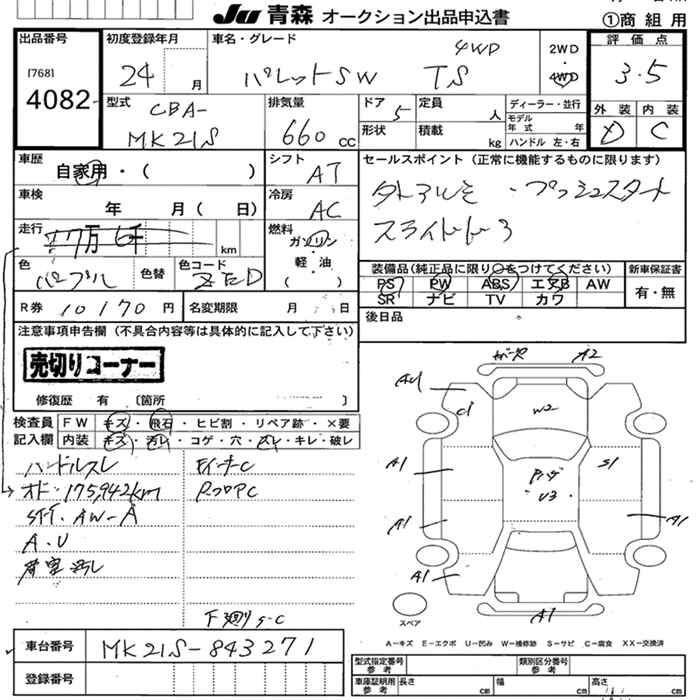 JU 青森 オークション出品申込書
①商 組 用
出品番号
[768]
4082
初度登録年月
24 月
車名・グレード
4WD
パレットSW TS
2WD
4WD
評 価 点
3.5
外 装
内 装
D
C
型式
CBA-
MK21S
排気量
660 cc
ドア
5
定員
人
形状
積載
kg
ディーラー・並行
モデル
年 式 年
ハンドル 左・右
車歴
自家用・( )
シフト
AT
セールスポイント(正常に機能するものに限ります)
・プッシュスタート
スライドドア
車検
年 月( 日)
冷房
AC
走行
km
燃料
ガソリン
軽・油
( )
色
パープル
色替
色コード
ZED
装備品(純正品に限り○をつけてください)
PS PW ABS エアB AW
SR ナビ TV カワ
新車保証書
有・無
R券 10170 円
名変期限 月 日
後日品
注意事項申告欄(不具合内容等は具体的に記入して下さい)
売切りコーナー
修復歴 有 〔箇所
検査員
記入欄
FW キズ・飛石・ヒビ割・リペア跡・×要
内装 キズ・汚レ・コゲ・穴・スレ・キレ・破レ
ハンドルスレ
オド・175,942km
A.U
A2
AU
U
W2
A1
S1
U3
A1
A1
A1
A1
スペア
A1
A-キズ E-エクボ U-凹み W-補修跡 S-サビ C-腐食 XX-交換済
車台番号
MK21S-843271
登録番号
型式指定番号
参考
類別区分番号
参考
車庫証明用
参考
長さ cm
幅 cm
高さ cm